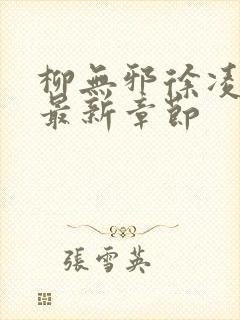 柳無邪徐凌
最新章節
張雪英